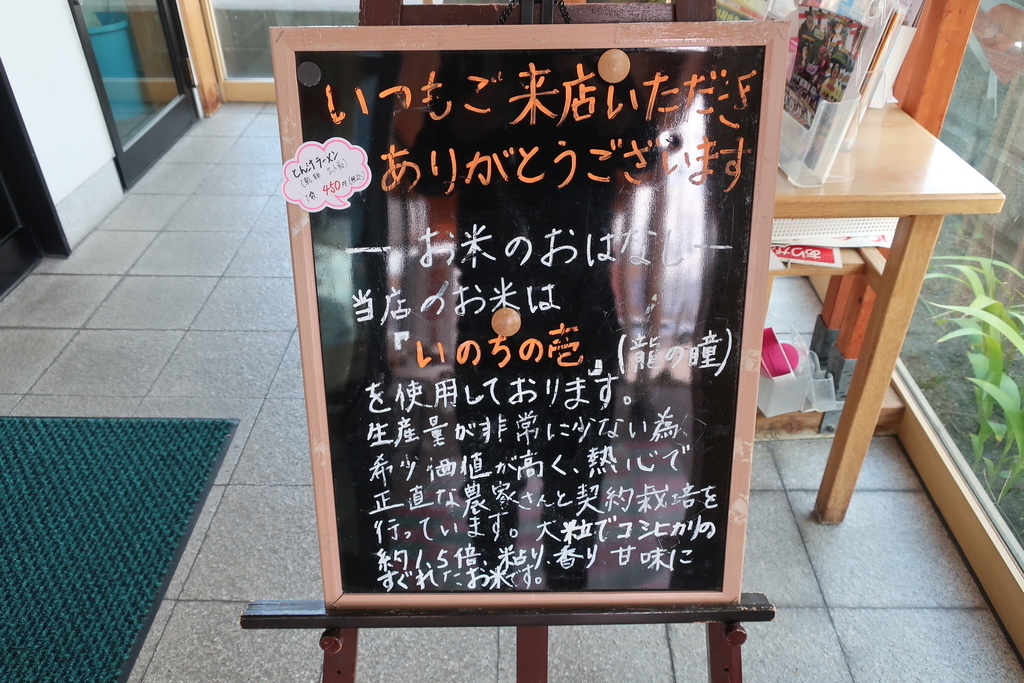 いつもご来店いただき
ありがとうございます
とんこつラーメン
1袋 450円(税込)
ー お米のおはなし ー
当店のお米は
「いのちの壱」(龍の瞳)
を使用しております。
生産量が非常に少ない為
希少価値が高く、熱心で
正直な農家さんと契約栽培を
行っています。大粒でコシヒカリの
約1.5倍、粘り、香り 甘味に
すぐれたお米です。